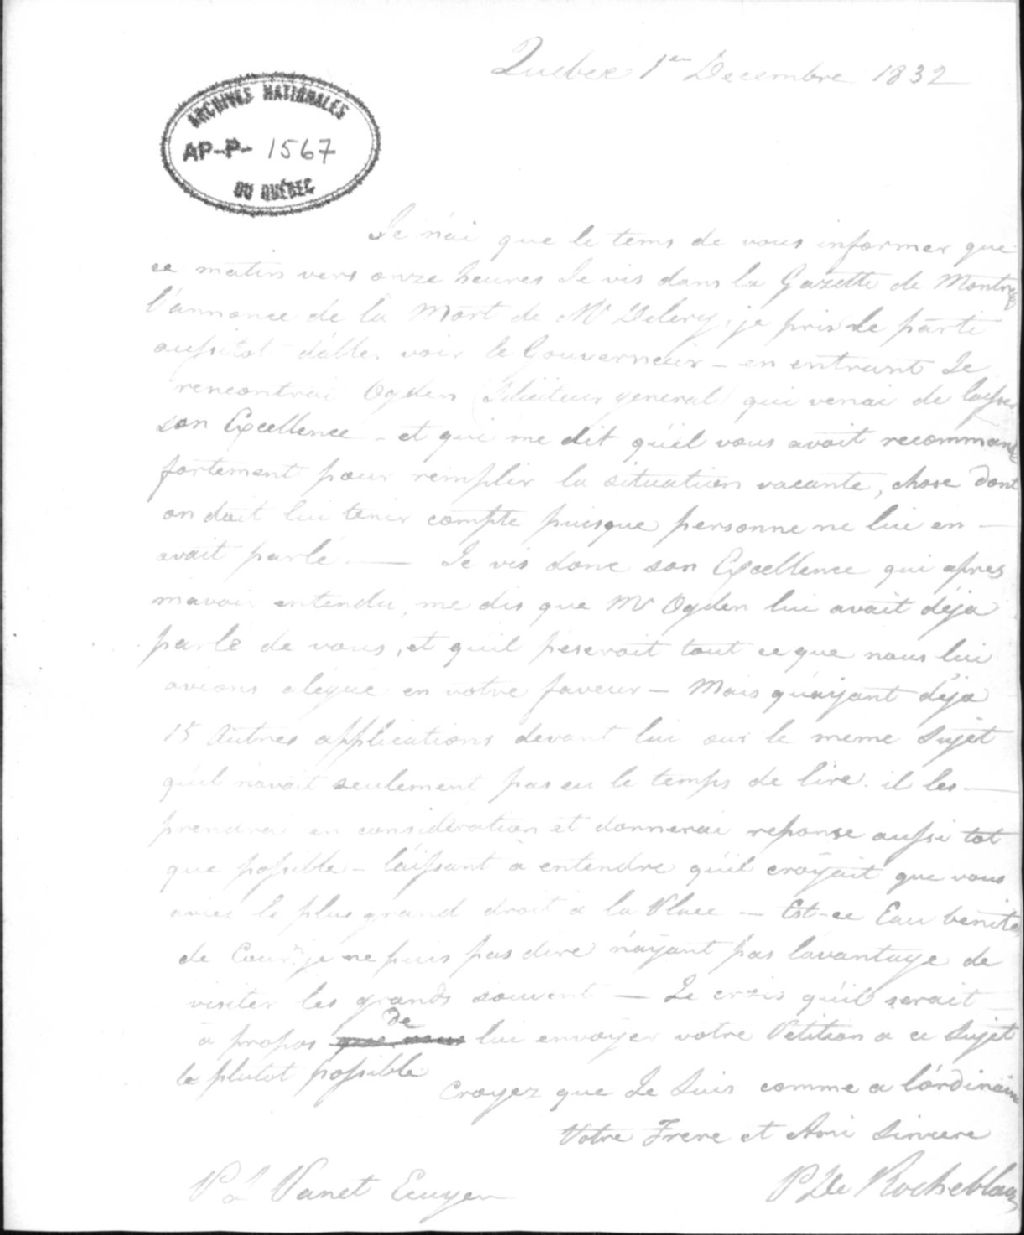 Quebec 1er Decembre 1832
ARCHIVES NATIONALES
AP-P- 1567
DU QUÉBEC
Je n'ai que le tems de vous informer que
ce matin vers onze heures Je vis dans la Gazette de Montre
l'annonce de la Mort de Mr Delery, je pris le parti
aussitot d'aller voir le Gouverneur – en entrant Je
rencontrai Ogden (Soliciteur general) qui venai de laisser
son Excellence – et qui me dit qu'il vous avait recomman
fortement pour remplir la situation vacante, chose dont
on doit lui tenir compte puisque personne ne lui en —
avait parlé — Je vis donc son Excellence qui apres
m'avoir entendu, me dis que Mr Ogden lui avait déja
parlé de vous, et qu'il peseroit tout ce que nous lui
avions alegué en votre faveur – Mais qu'ayant déja
15 Autres applications devant lui sur le meme Sujet
qu'il n'avait seulement pas eu le temps de lire. il les —
prendrai en consideration et donnerai reponse aussi tot
que possible – laissant a entendre qu'il croyait que vous
aviez le plus grand droit a la Place — Est-ce Eau benite
de Cour? je ne puis pas dire n'ayant pas lavantage de
visiter les grands souvent — Je crois qu'il serait
a propos de lui envoyer votre Petition a ce Sujet
le plutot possible
Croyez que Je Suis comme a l'ordinaire
Votre Frere et Ami Sincere
P L Panet Ecuyer
P De Rocheblave